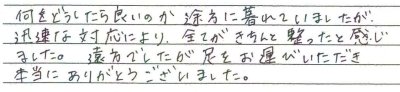 何をどうしたら良いのか途方に暮れていましたが、
迅速な対応により、全てがきちんと整ったと感じ
ました。遠方でしたが足をお運びいただき
本当にありがとうございました。